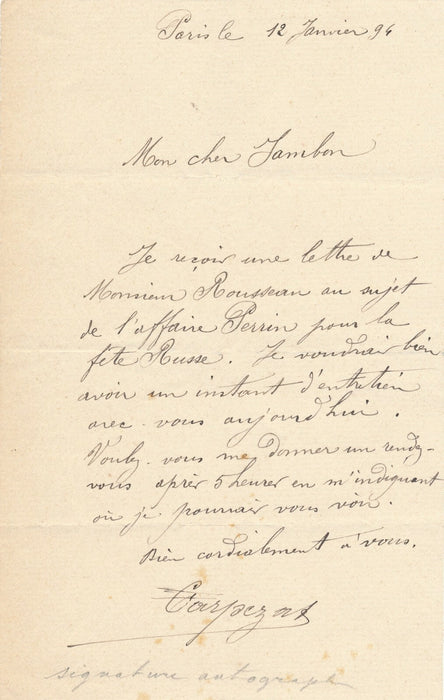 Paris le 12 Janvier 94
Mon cher Jambon
Je reçois une lettre de
Monsieur Rousseau au sujet
de l'affaire Perrin pour la
fête Russe. Je voudrais bien
avoir un instant d'entretien
avec vous aujourd'hui.
Voulez-vous me donner un rendez-
vous après 5 heures en m'indiquant
où je pourrais vous voir.
Bien cordialement à vous.
Carpezat
signature autographe